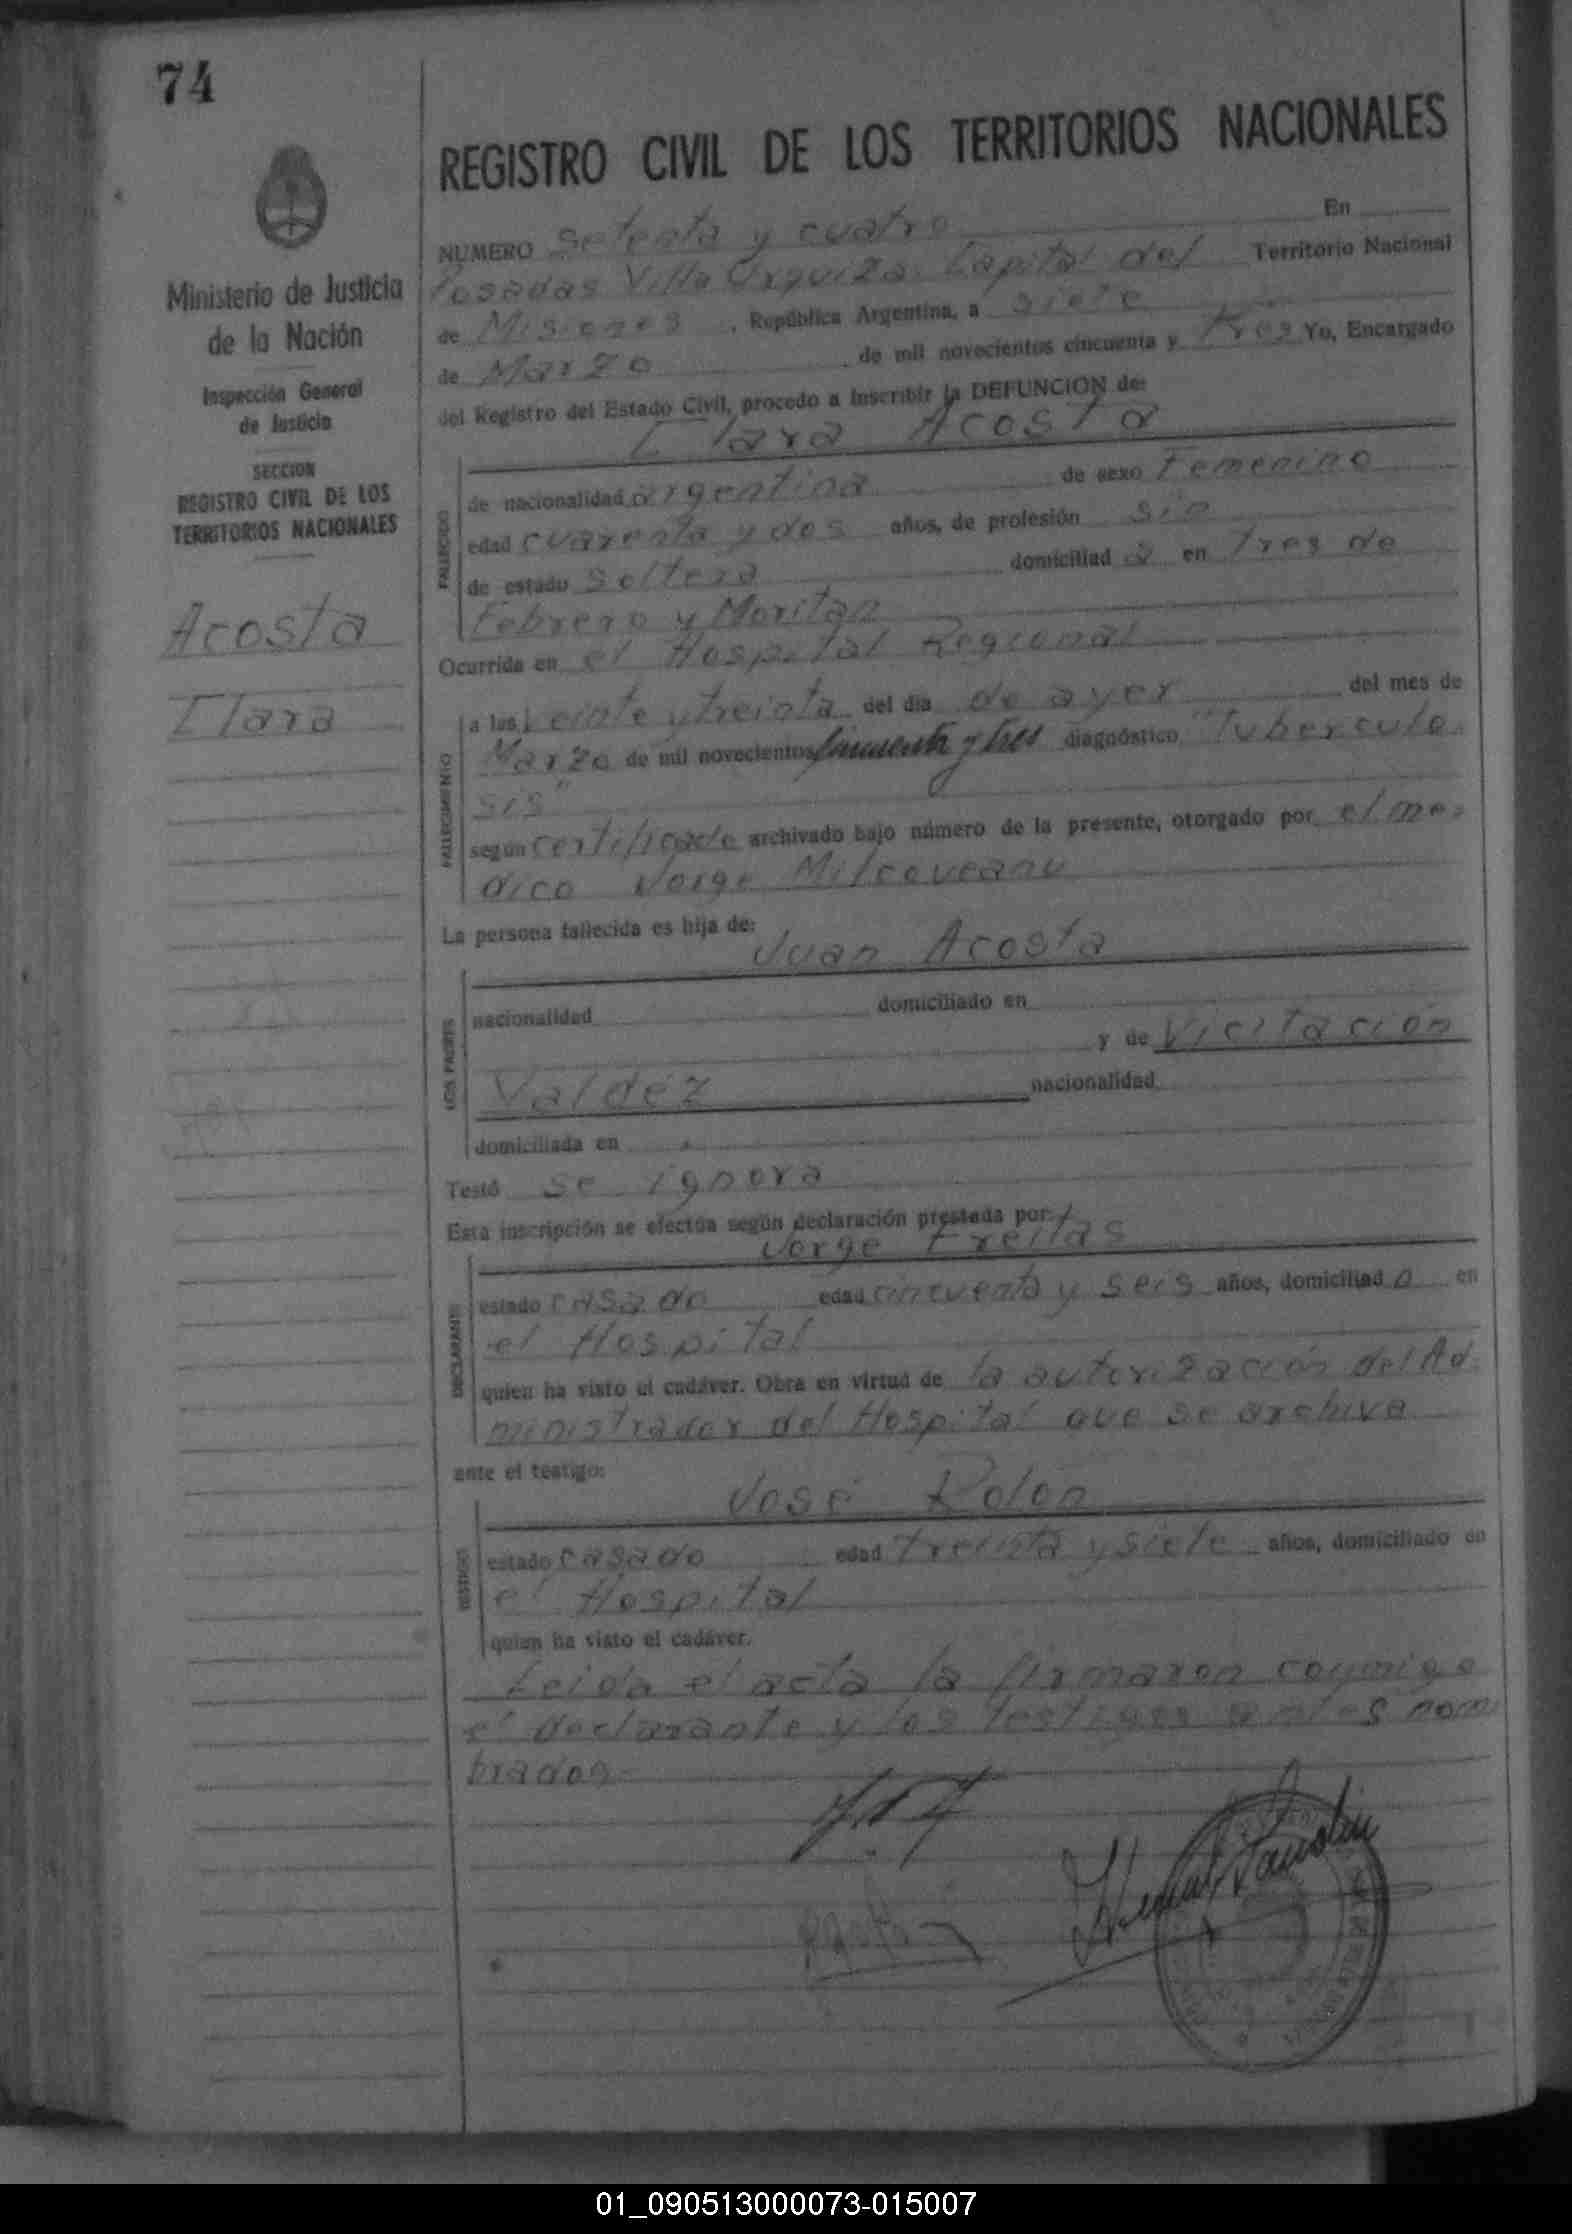 74
REGISTRO CIVIL DE LOS TERRITORIOS NACIONALES
Ministerio de Justicia
de la Nación
Inspección General
de Justicia
SECCION
REGISTRO CIVIL DE LOS
TERRITORIOS NACIONALES
Acosta
Clara
NUMERO setenta y cuatro En
Posadas Villa Urquiza. Capital del Territorio Nacional
de Misiones, República Argentina, a siete
de Marzo de mil novecientos cincuenta y tres Yo, Encargado
del Registro del Estado Civil, procedo a inscribir la DEFUNCION de:
Clara Acosta
FALLECIDO
de nacionalidad argentina de sexo Femenino
edad cuarenta y dos años, de profesión sin
de estado soltera domiciliad a en Tres de
Febrero y Moritan
Ocurrida en el Hospital Regional
FALLECIMIENTO
a las veinte y treinta del día de ayer del mes de
Marzo de mil novecientos cincuenta y tres diagnóstico "Tuberculo-
sis"
según certificado archivado bajo número de la presente, otorgado por el me-
dico Jorge Milcoveanu
La persona fallecida es hija de:
Juan Acosta
LOS PADRES
nacionalidad domiciliado en
y de Vicitación
Valdéz nacionalidad
domiciliada en
Testó se ignora
Esta inscripción se efectúa según declaración prestada por:
Jorge Freitas
DECLARANTE
estado casado edad cincuenta y seis años, domiciliad o en
el Hospital
quien ha visto el cadáver. Obra en virtud de la autorización del Ad-
ministrador del Hospital que se archiva
ante el testigo:
José Rolón
TESTIGO
estado casado edad treinta y siete años, domiciliado en
el Hospital
quien ha visto el cadáver.
Leida el acta la firmaron conmigo
el declarante y los testigos antes nom
brados-
01_090513000073-015007